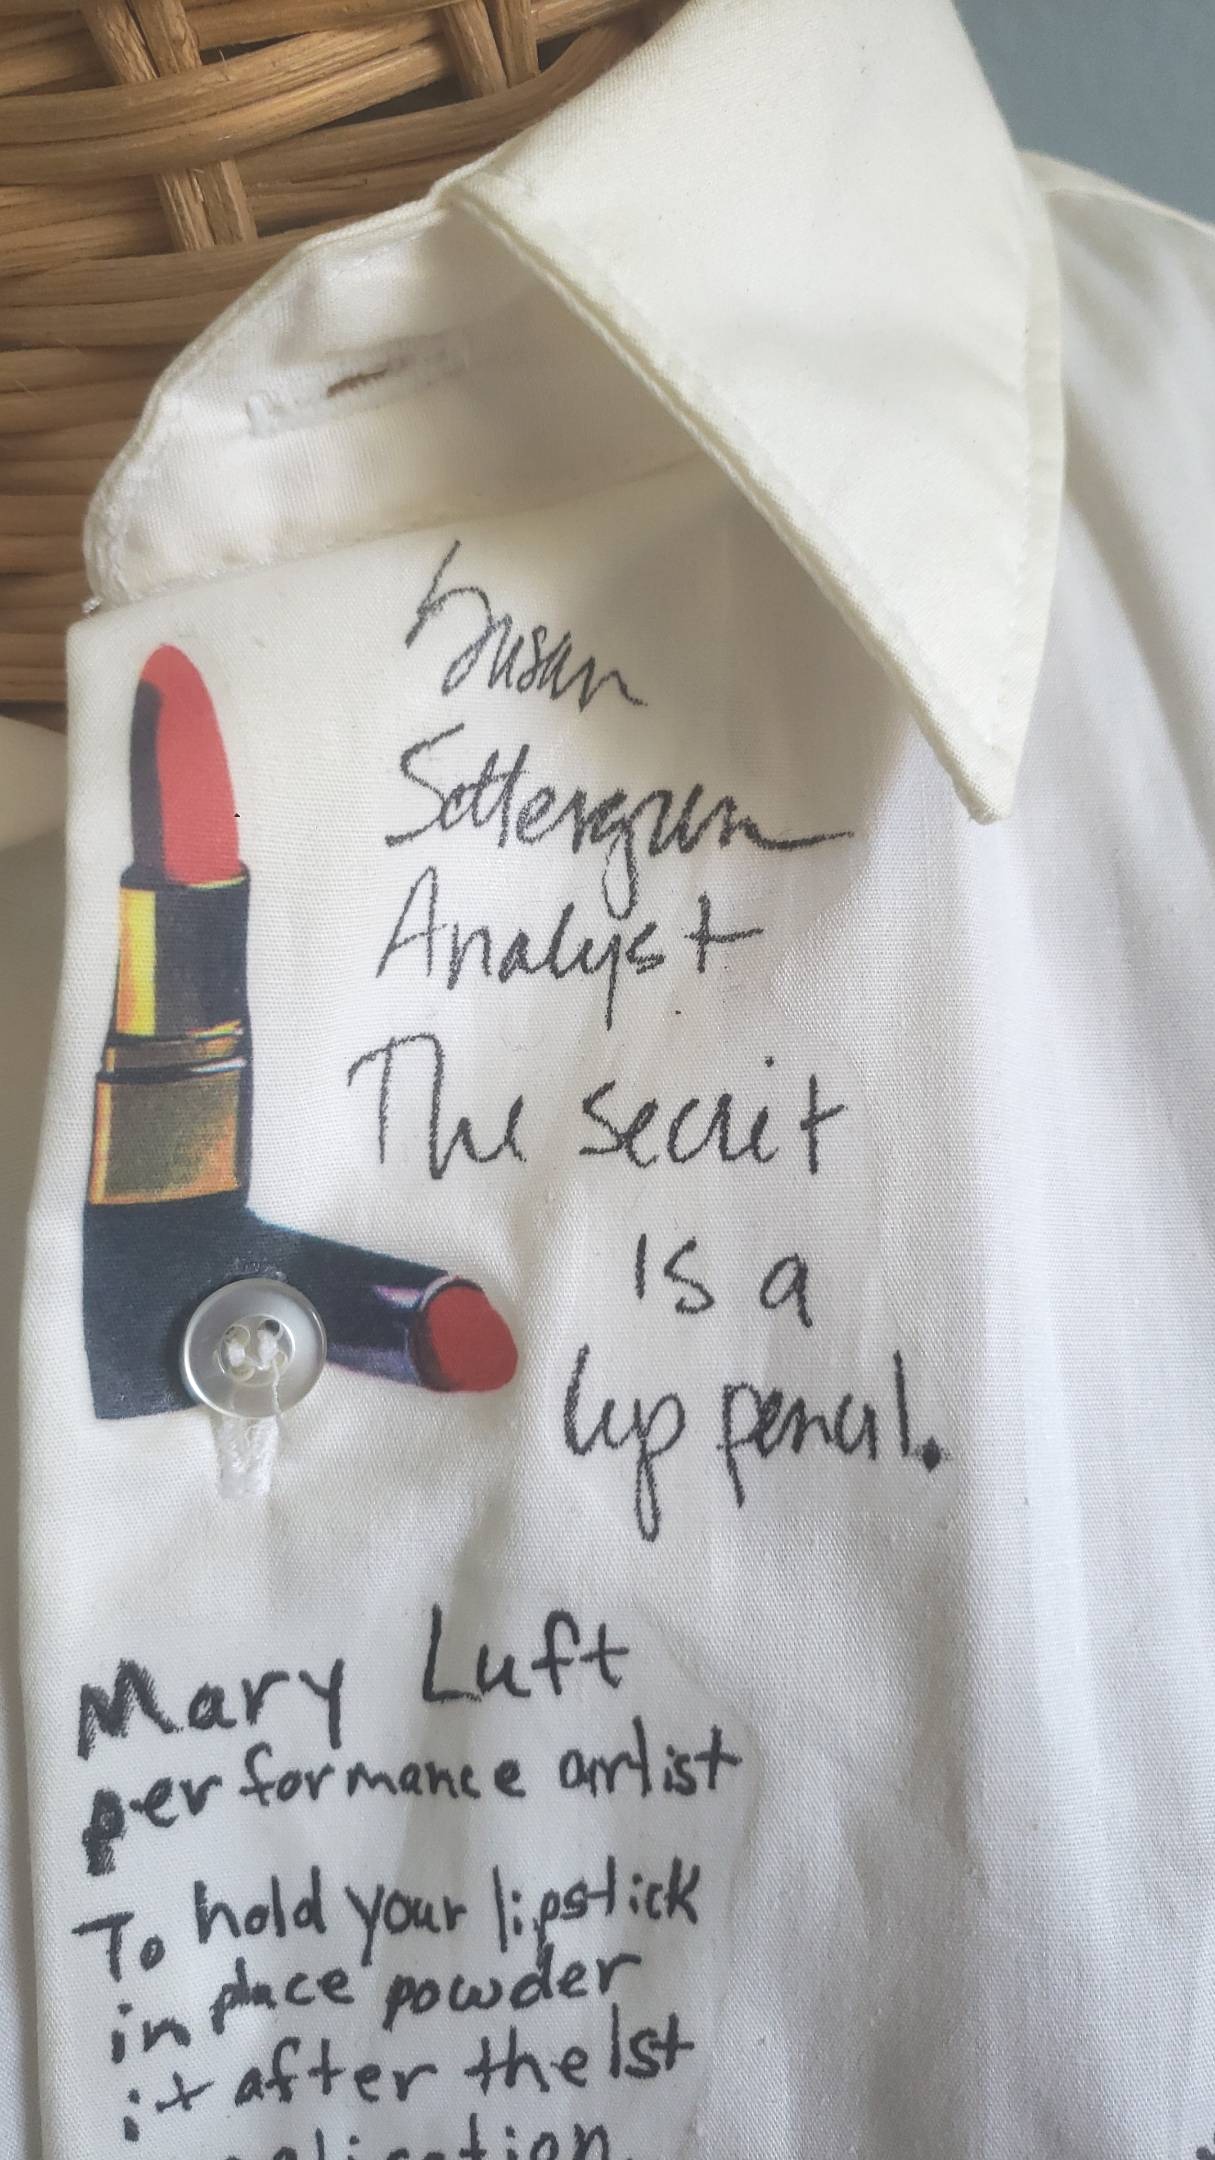 Susan
Settergren
Analyst
The secret
is a
lip pencil.
Mary Luft
performance artist
To hold your lipstick
in place powder
it after the 1st